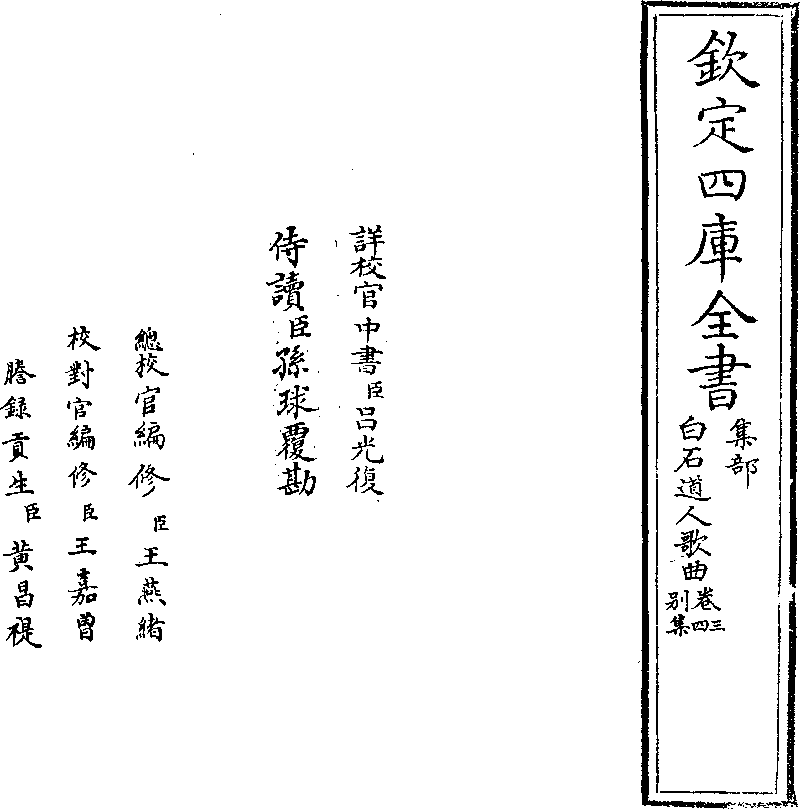 欽定四庫全書
集部
白石道人歌曲
卷三
四
別集
詳校官中書臣呂光復
侍讀臣孫球覆勘
總校官編修臣王燕緒
校對官編修臣王嘉曾
謄錄貢生臣黃昌禔